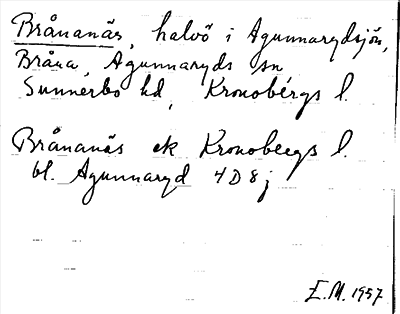 Brånanäs, halvö i Agunnarydsjön,
Bråna, Agunnaryds sn
Sunnerbo hd, Kronobergs l.
Brånanäs ek Kronobergs l.
bl. Agunnaryd 4D8j
E.M. 1957